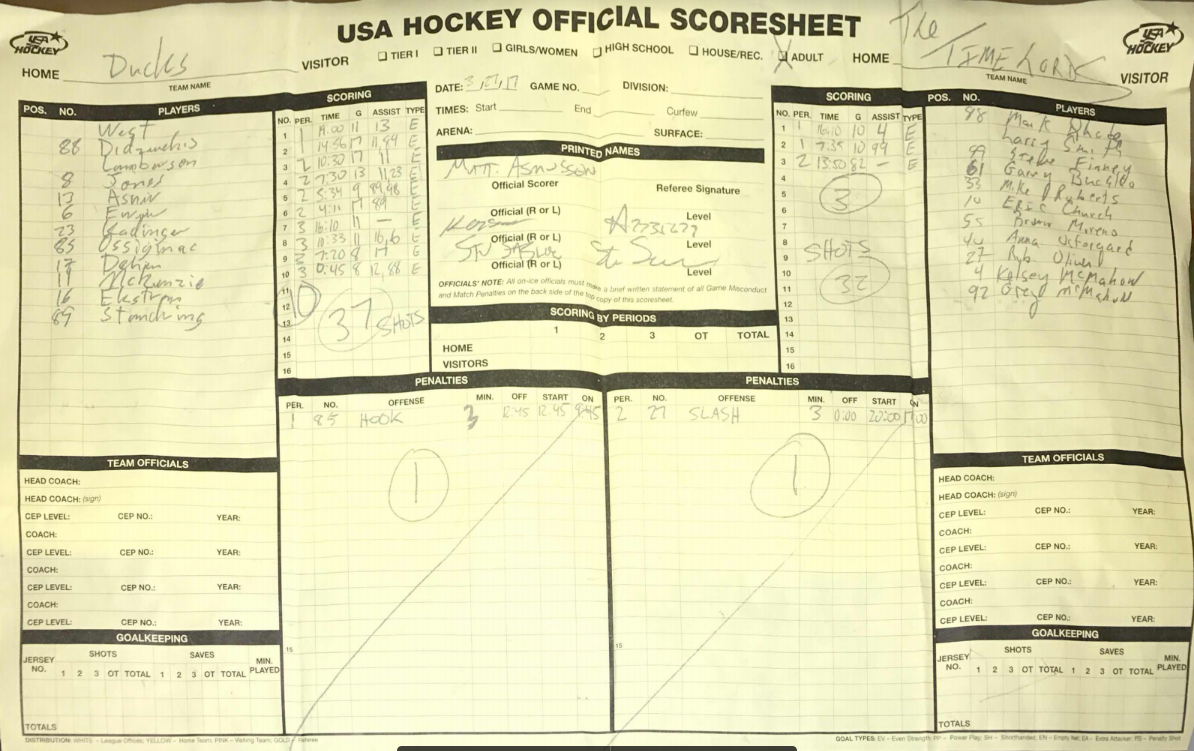 USA HOCKEY OFFICIAL SCORESHEET
USA HOCKEY
HOME Ducks VISITOR
TEAM NAME
☐ TIER I ☐ TIER II ☐ GIRLS/WOMEN ☐ HIGH SCHOOL ☐ HOUSE/REC. ☒ ADULT
HOME The TIME LORDS VISITOR
TEAM NAME
USA HOCKEY
POS. NO. PLAYERS
West
88
Lamberson
8 Jones
13
6
23
85
17
11 McKenzie
16 Ekstrom
89
SCORING
NO. PER. TIME G ASSIST TYPE
1 1 19:00 11 13 E
2 1 14:56 17 11,89 E
3 2 10:30 17 11 E
4 2 7:30 13 11,23 E
5 2 5:34 9 E
6 2 4:11 17 89 E
7 3 16:10 11 — E
8 3 10:33 11 16,6 E
9 3 7:20 8 17 E
10 3 0:45 8 12,88 E
11
12
13
14
15
16
10
37 SHOTS
DATE: 3/ /17 GAME NO. DIVISION:
TIMES: Start End Curfew
ARENA: SURFACE:
PRINTED NAMES
Matt Asmusson
Official Scorer Referee Signature
Official (R or L) Level
Official (R or L) Level
Official (R or L) Level
OFFICIALS' NOTE: All on-ice officials must make a brief written statement of all Game Misconduct
and Match Penalties on the back side of the top copy of this scoresheet.
SCORING BY PERIODS
1 2 3 OT TOTAL
HOME
VISITORS
SCORING
NO. PER. TIME G ASSIST TYPE
1 1 16:10 10 4 E
2 1 7:35 10 99 E
3 2 13:50 82 — E
4
5
6
7
8
9
10
11
12
13
14
15
16
3
SHOTS
32
POS. NO. PLAYERS
88 Mark
99 Larry Smith
Steve Finney
61 Garry
33 Mike Roberts
10 Eric Church
55 Moreno
Anna
27 Oliver
4 Kelsey McMahon
92 Greg McMahon
PENALTIES
PER. NO. OFFENSE MIN. OFF START ON
1 85 HOOK 3 12:45 12:45 9:45
1
15
PENALTIES
PER. NO. OFFENSE MIN. OFF START ON
2 27 SLASH 3 0:00 20:00 17:00
1
15
TEAM OFFICIALS
HEAD COACH:
HEAD COACH: (sign)
CEP LEVEL: CEP NO.: YEAR:
COACH:
CEP LEVEL: CEP NO.: YEAR:
COACH:
CEP LEVEL: CEP NO.: YEAR:
COACH:
CEP LEVEL: CEP NO.: YEAR:
GOALKEEPING
JERSEY NO. SHOTS SAVES MIN. PLAYED
1 2 3 OT TOTAL 1 2 3 OT TOTAL
TOTALS
TEAM OFFICIALS
HEAD COACH:
HEAD COACH: (sign)
CEP LEVEL: CEP NO.: YEAR:
COACH:
CEP LEVEL: CEP NO.: YEAR:
COACH:
CEP LEVEL: CEP NO.: YEAR:
COACH:
CEP LEVEL: CEP NO.: YEAR:
GOALKEEPING
JERSEY NO. SHOTS SAVES MIN. PLAYED
1 2 3 OT TOTAL 1 2 3 OT TOTAL
TOTALS
DISTRIBUTION: WHITE – League Offices; YELLOW – Home Team; PINK – Visiting Team; GOLD – Referee
GOAL TYPES: EV – Even Strength; PP – Power Play; SH – Shorthanded; EN – Empty Net; EA – Extra Attacker; PS – Penalty Shot